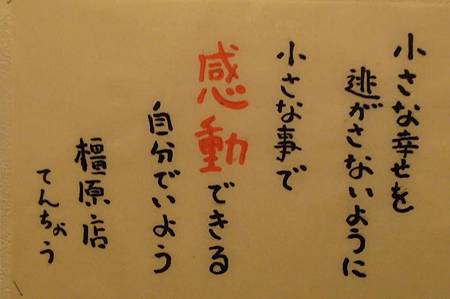 小さな幸せを
逃がさないように
小さな事で
感動できる
自分でいよう
橿原店
てんちょう